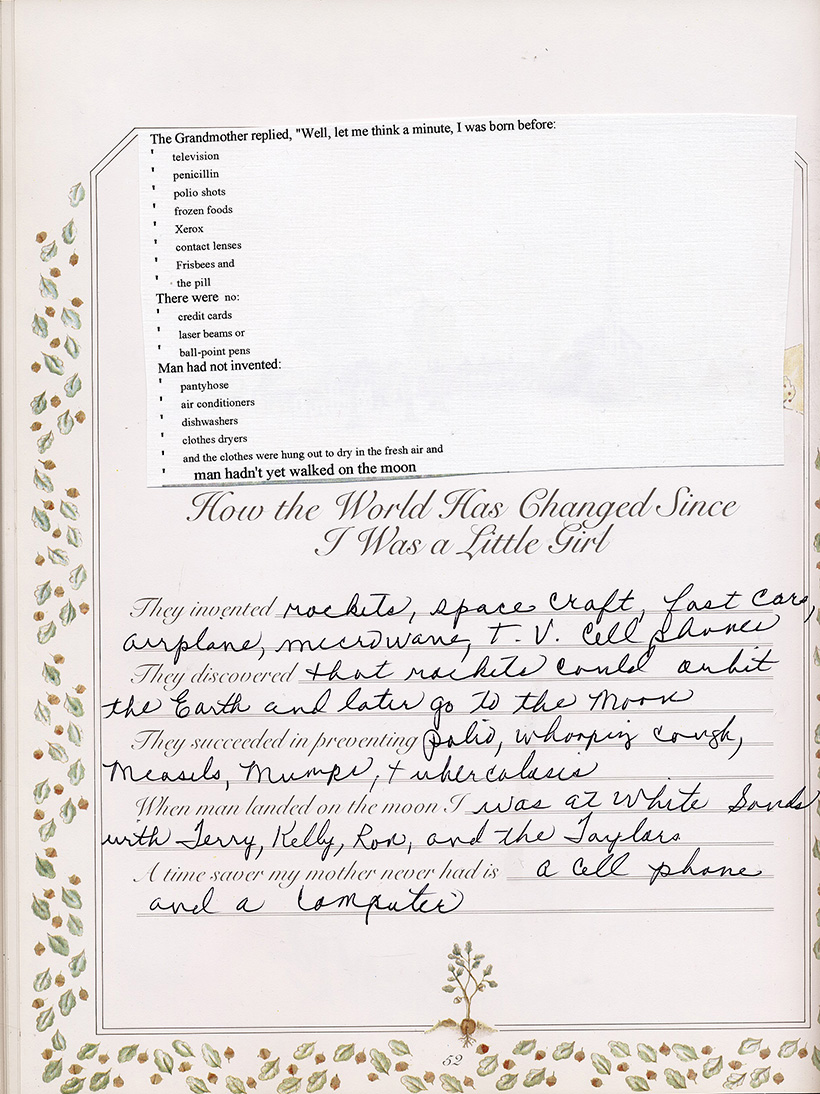 The Grandmother replied, "Well, let me think a minute, I was born before:
' television
' penicillin
' polio shots
' frozen foods
' Xerox
' contact lenses
' Frisbees and
' the pill
There were no:
' credit cards
' laser beams or
' ball-point pens
Man had not invented:
' pantyhose
' air conditioners
' dishwashers
' clothes dryers
' and the clothes were hung out to dry in the fresh air and
' man hadn't yet walked on the moon
How the World Has Changed Since
I Was a Little Girl
They invented rockets, space craft, fast cars,
airplane, microwave, T.V. Cell phones
They discovered that rockets could orbit
the Earth and later go to the Moon
They succeeded in preventing polio, whooping cough,
Measels, Mumps, tuberculosis
When man landed on the moon I was at White Sands
with Terry, Kelly, Ron, and the Taylors
A time saver my mother never had is a cell phone
and a computer
52